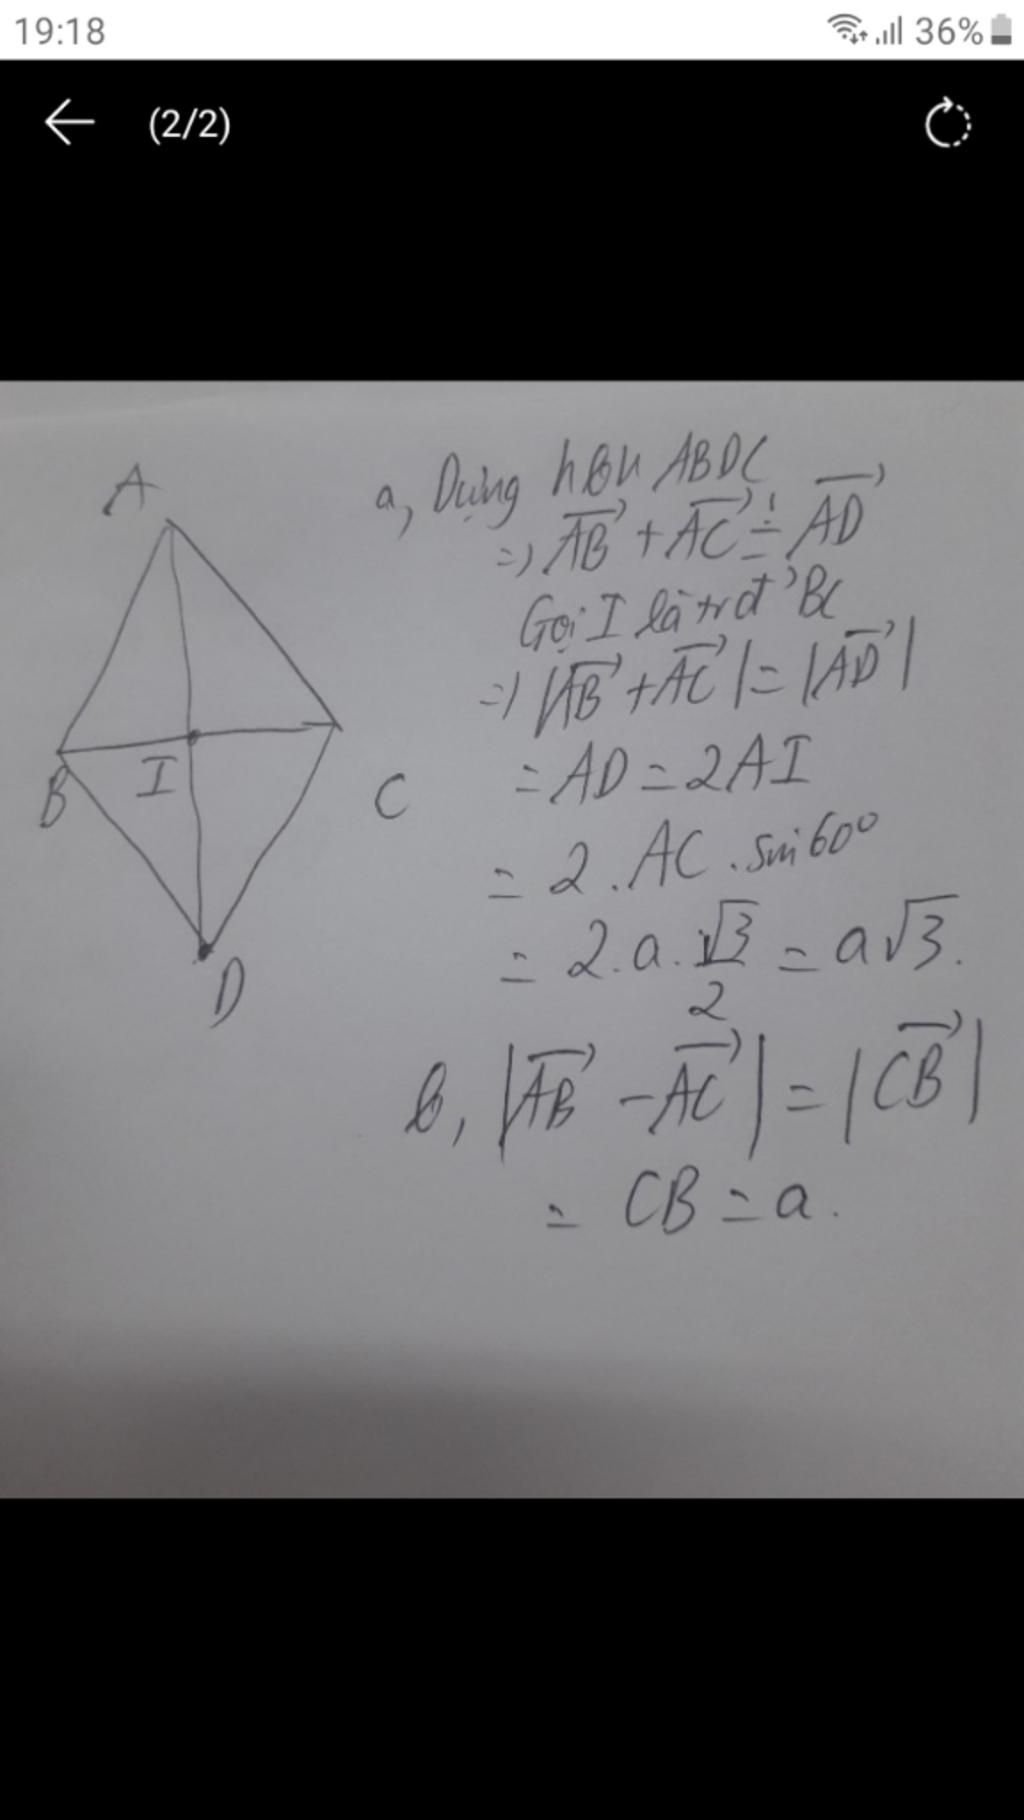 19:18
36%
(2/2)
A
B
I
C
D
a, Dựng hbh ABDC
=> AB + AC = AD
Gọi I là trđ BC
=> |AB + AC| = |AD|
= AD = 2AI
= 2.AC.sin60°
= 2.a.√3/2 = a√3.
b, |AB - AC| = |CB|
= CB = a.